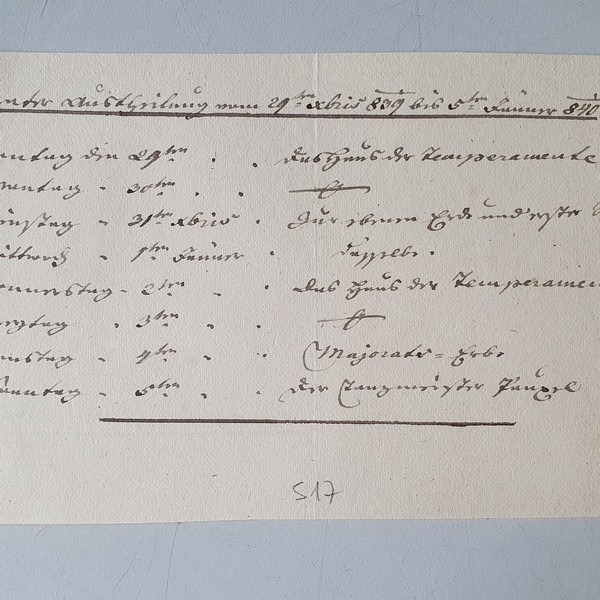 Austheilung vom 29ten Xbris 839 bis 5ten Jänner 840
ntag den 29ten . . das Haus der Temperamente
ontag - 30ten . .
ienstag - 31ten Xbris . Zur ebenen Erde und erster
ittwoch - 1ten Jänner . dasselbe .
onnerstag - 2ten . . das Haus der Temperamen
eytag - 3ten . .
mstag - 4ten . . Majorats = Erbe
onntag - 5ten . . der Tanzmeister Pauxel
S17